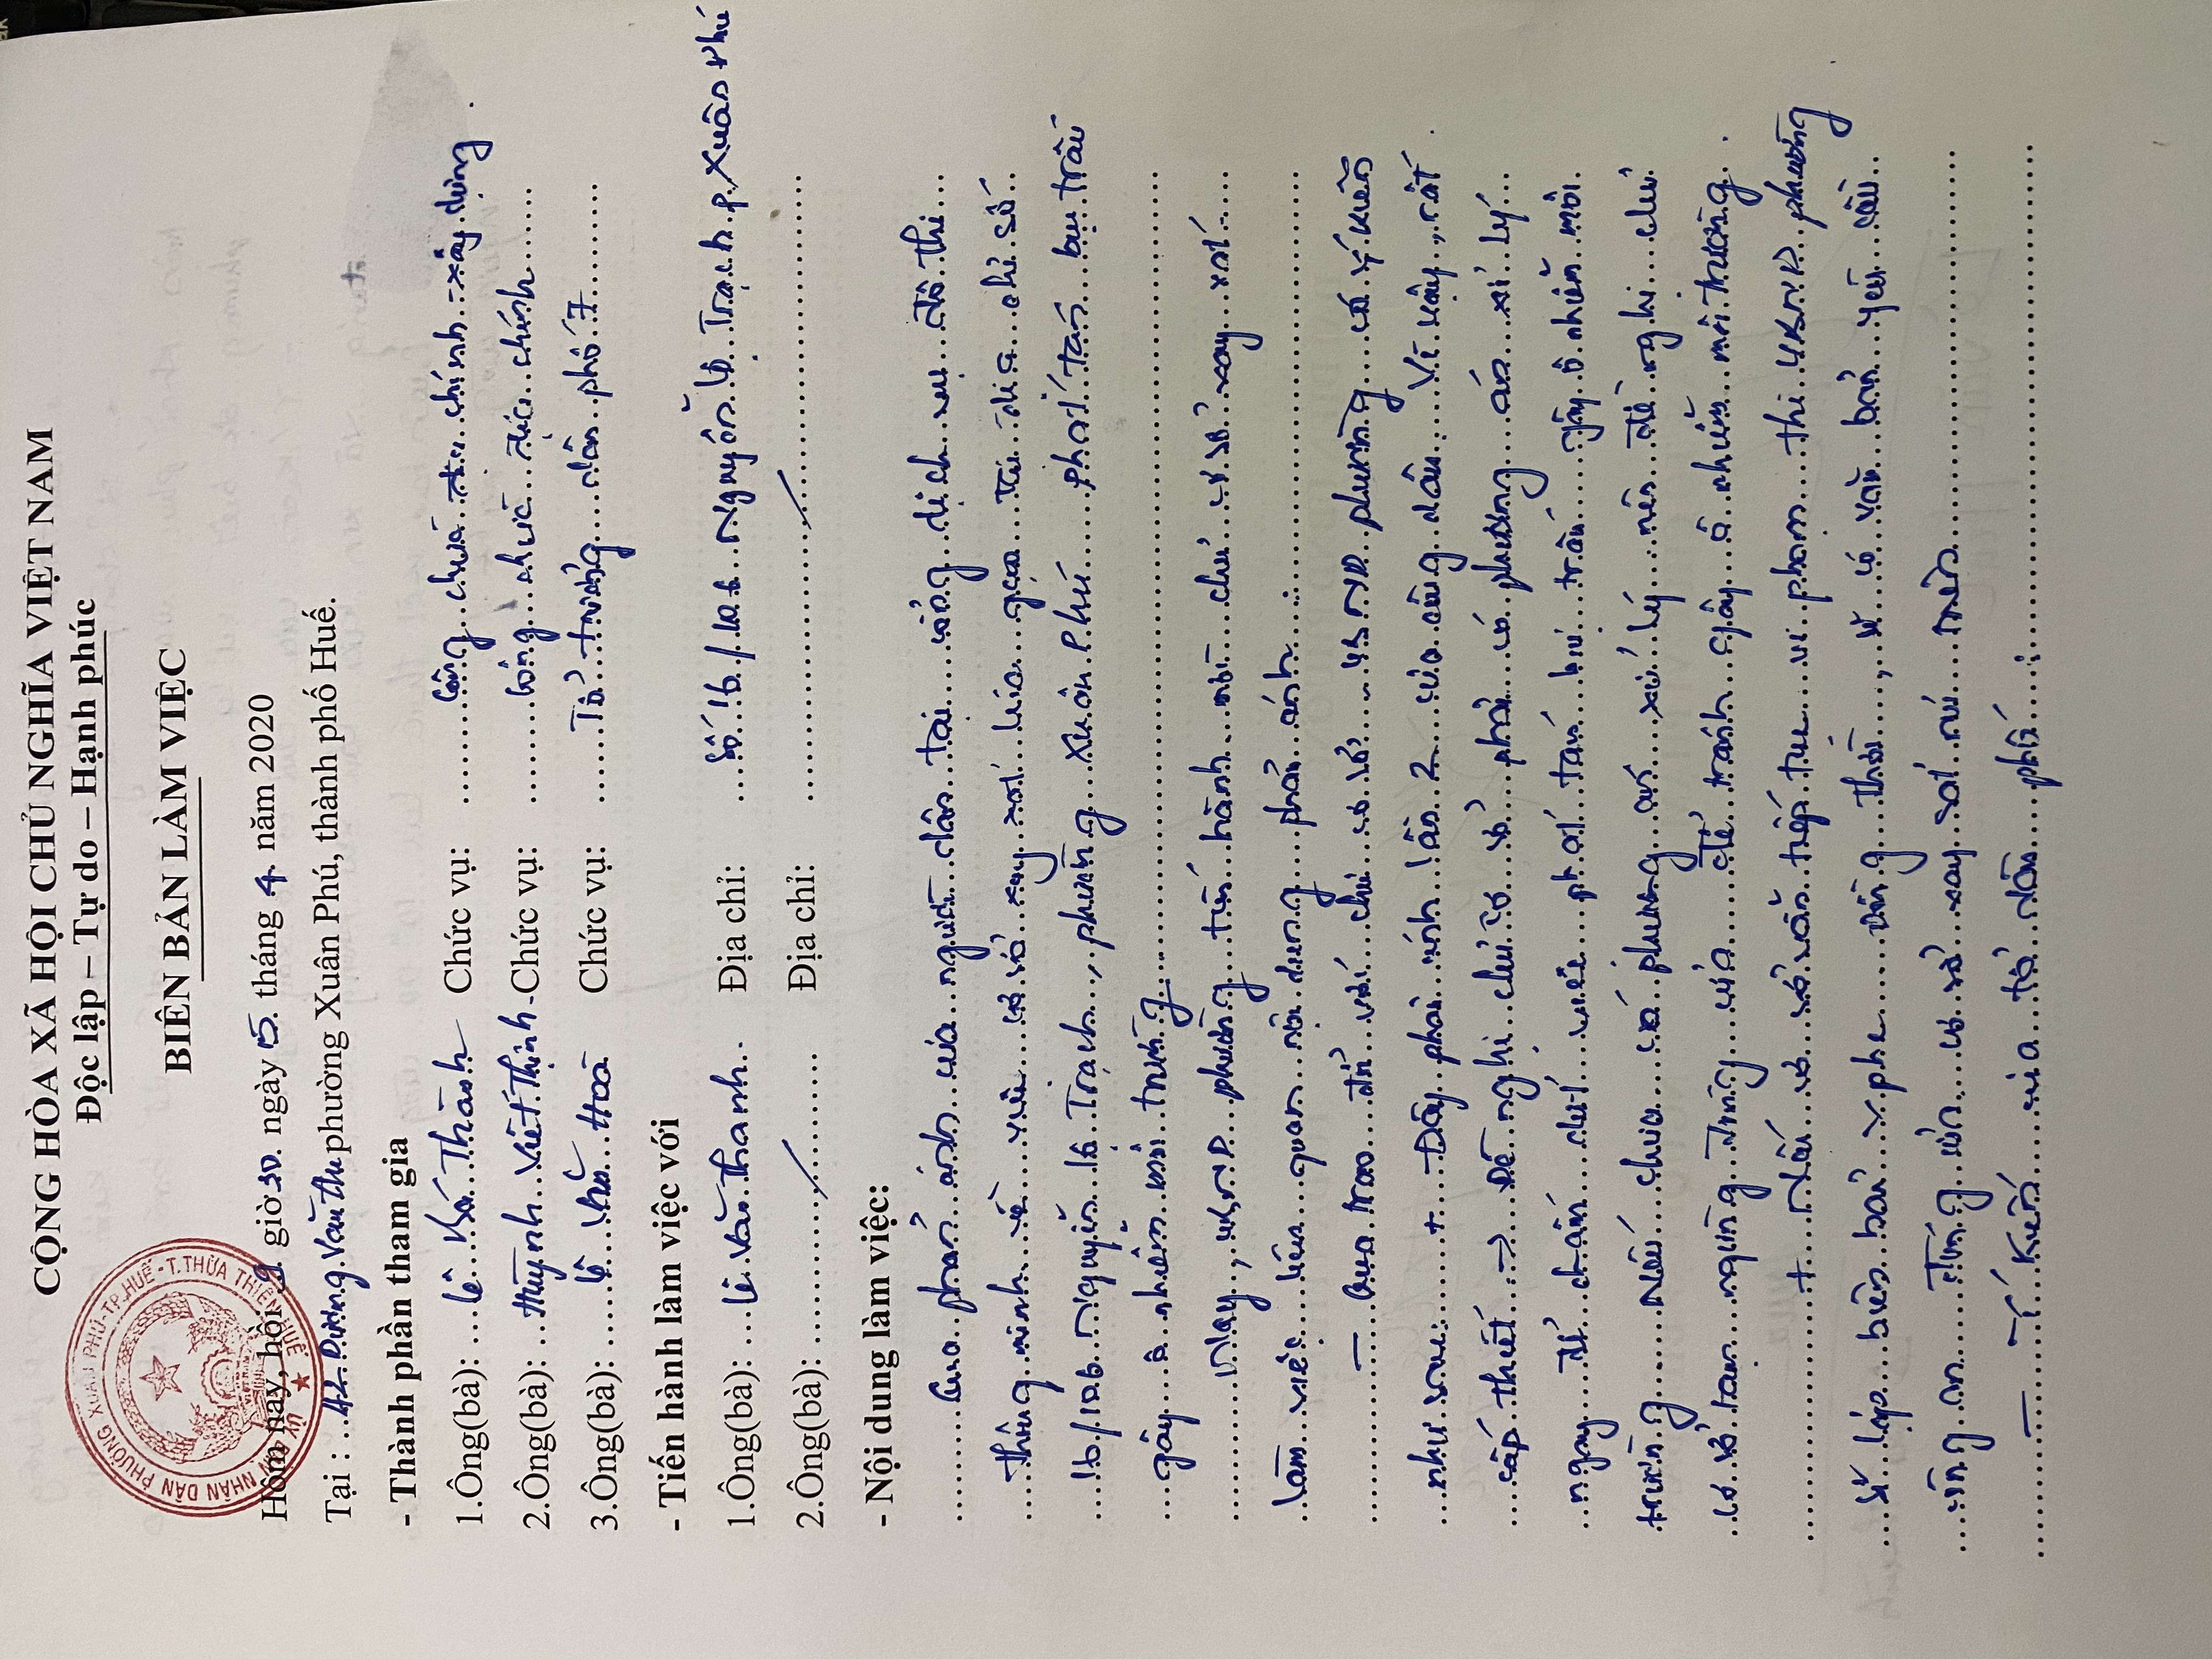 CỘNG HÒA XÃ HỘI CHỦ NGHĨA VIỆT NAM
Độc lập – Tự do – Hạnh phúc
BIÊN BẢN LÀM VIỆC
ỦY BAN NHÂN DÂN PHƯỜNG XUÂN PHÚ - TP.HUẾ - T.THỪA THIÊN HUẾ
Hôm nay, hồi 9 giờ 30 ngày 15 tháng 4 năm 2020
Tại : 42 Dương Văn An phường Xuân Phú, thành phố Huế.
- Thành phần tham gia
1.Ông(bà): Lê Bá Thành Chức vụ: Công chức địa chính - xây dựng
2.Ông(bà): Huỳnh Viết Thịnh - Chức vụ: Công chức địa chính
3.Ông(bà): Lê Hoà Chức vụ: Tổ trưởng dân phố 7
- Tiến hành làm việc với
1.Ông(bà): Lê Văn Thanh. Địa chỉ: Số 16/106 Nguyễn Lộ Trạch p. Xuân Phú
2.Ông(bà): Địa chỉ:
- Nội dung làm việc:
Qua phản ánh của người dân tại cổng dịch vụ đô thị
thông minh về việc cơ sở xay xát lúa gạo tại địa chỉ số
16/106 Nguyễn Lộ Trạch, phường Xuân Phú phát tán bụi trấu
gây ô nhiễm môi trường.
Nay, UBND phường tiến hành mời chủ cơ sở xay xát
làm việc liên quan nội dung phản ánh:
- Qua trao đổi với chủ cơ sở UBND phường có ý kiến
như sau: + Đây phản ánh lần 2 của công dân. Vì vậy, rất
cấp thiết → Đề nghị chủ cơ sở phải có phương án xử lý
ngay để chấm dứt việc phát tán bụi trấu gây ô nhiễm môi
trường. Nếu chưa có phương án xử lý nên đề nghị chủ
cơ sở tạm ngừng để tránh gây ô nhiễm môi trường.
+ Nếu cơ sở vẫn tiếp tục vi phạm thì UBND phường
sẽ lập biên bản đồng thời, sẽ có văn bản yêu cầu
công an cơ sở xay xát nói trên
- Ý kiến của tổ dân phố: